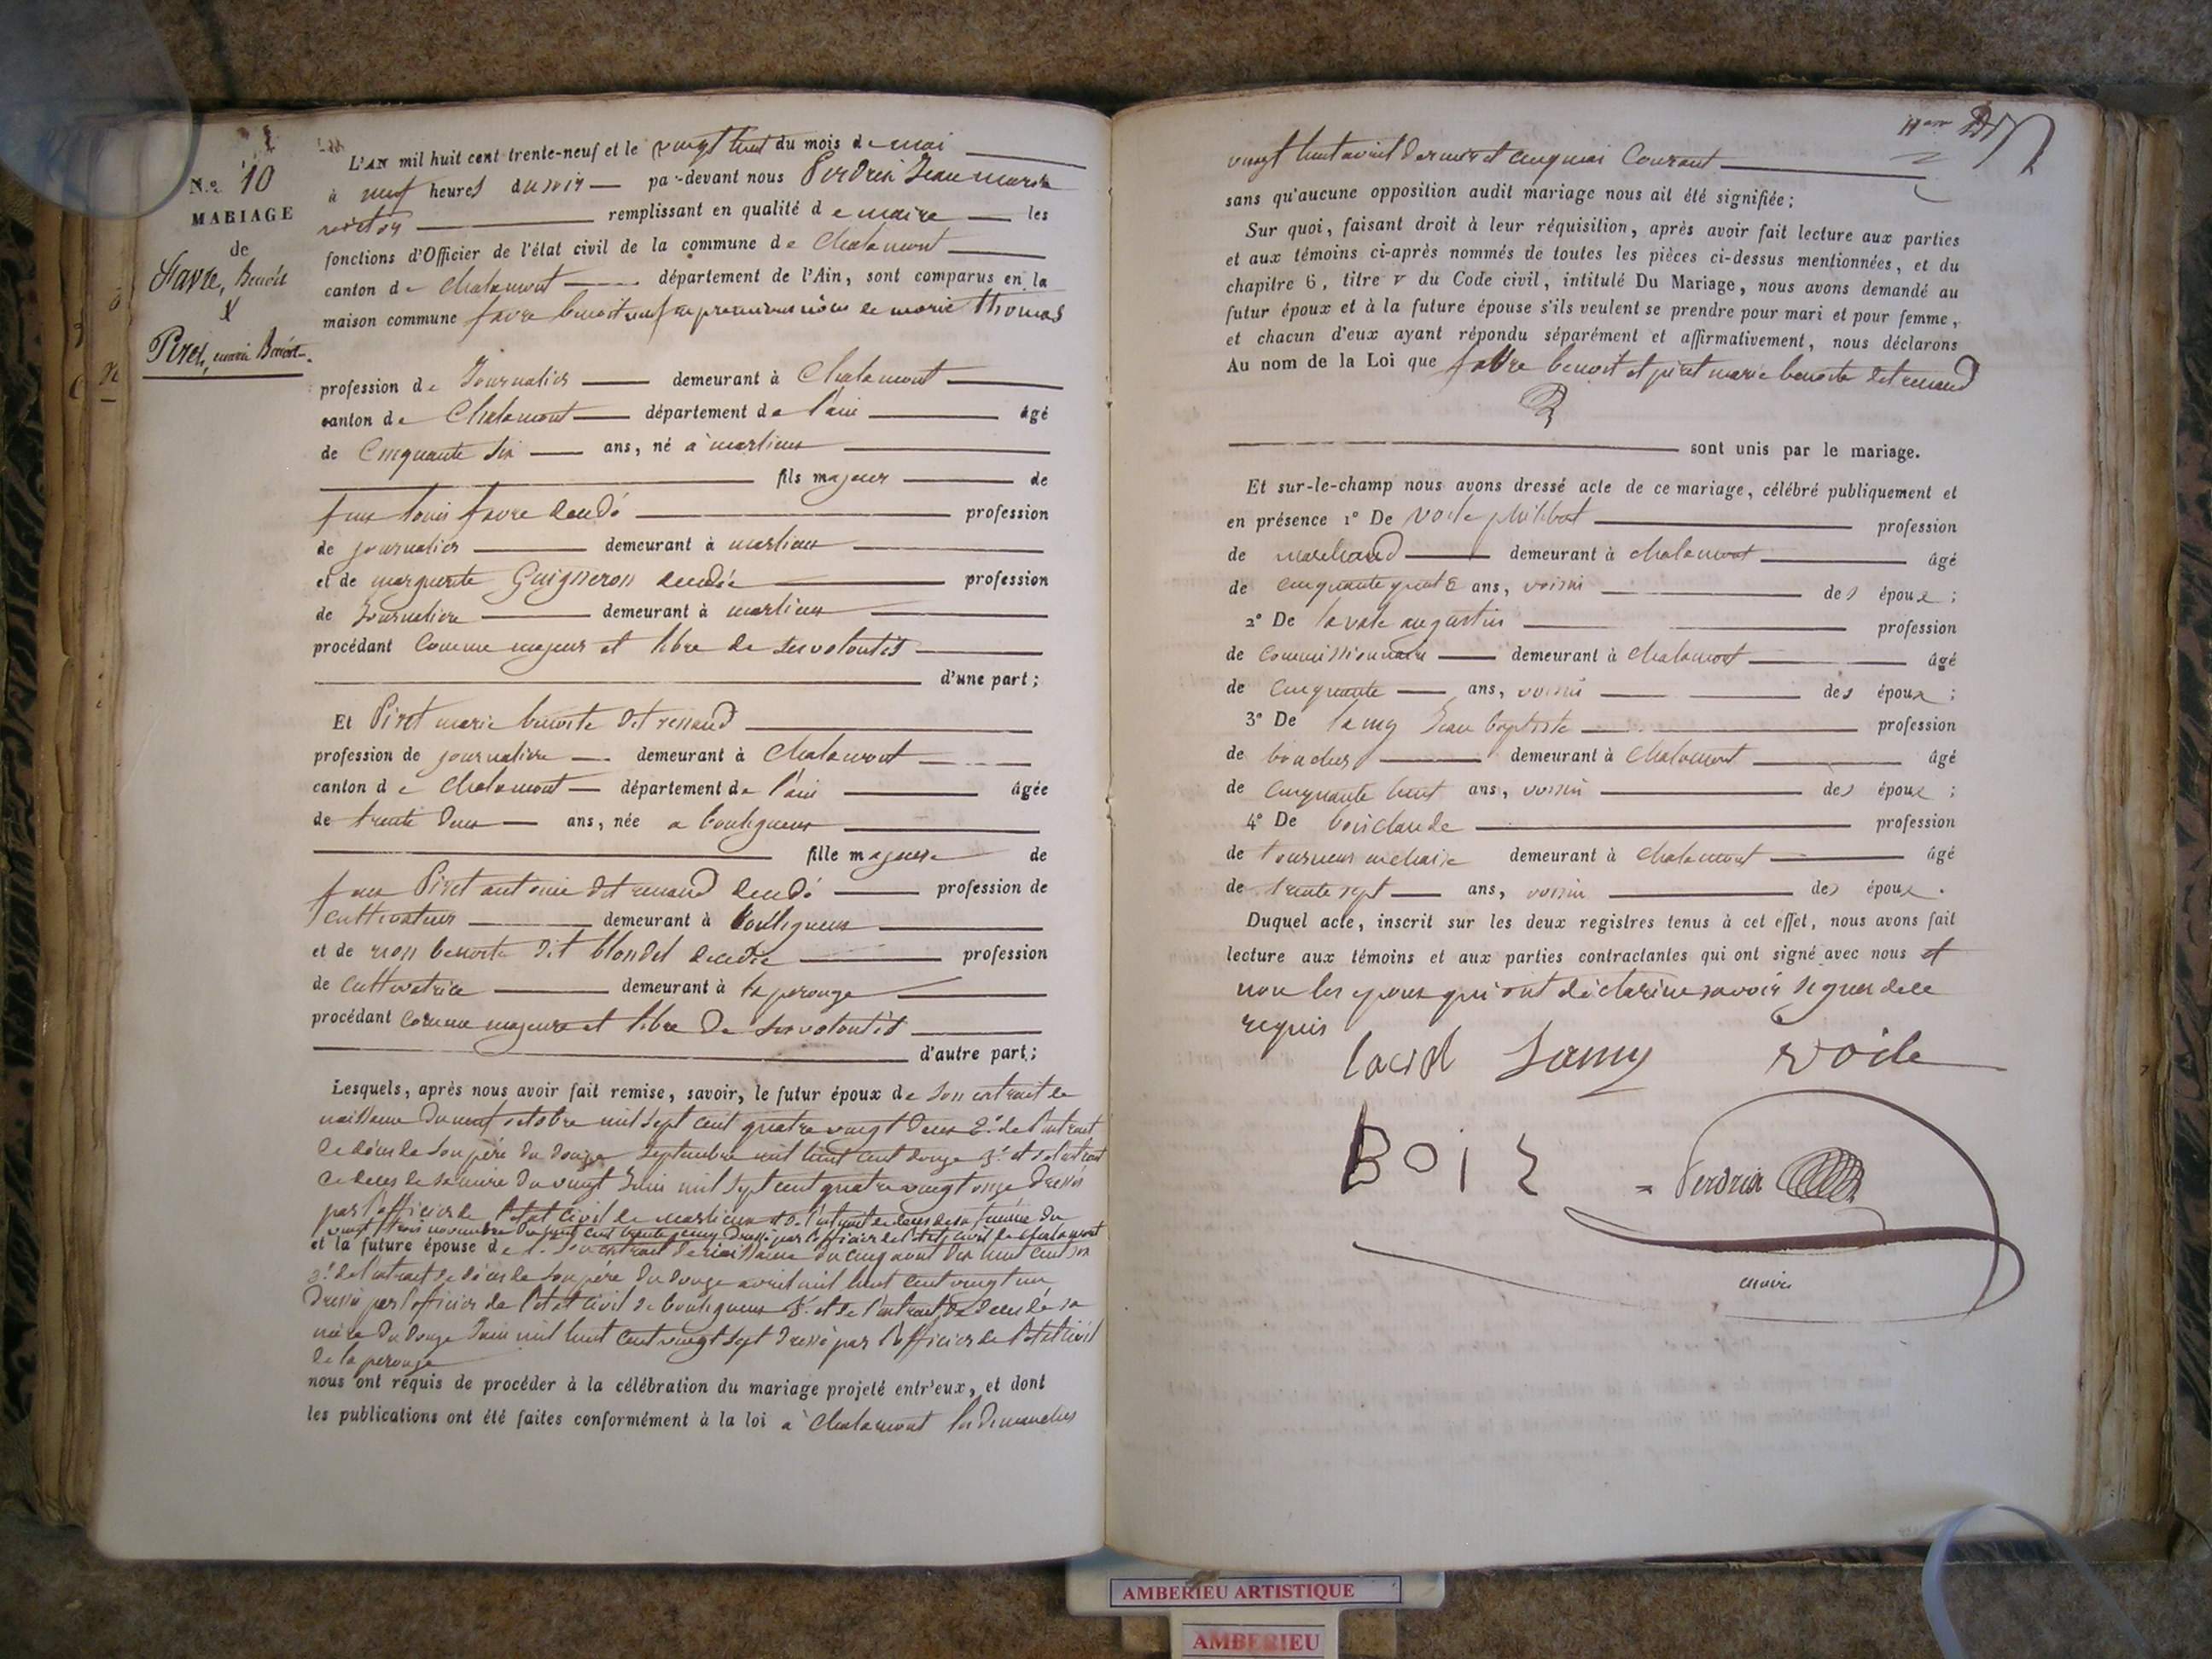 N.º 10
MARIAGE
de
Favre, Benoît
X
Piret, marie Benoîte.
L'AN mil huit cent trente-neuf et le vingt huit du mois de mai
à neuf heures du soir par-devant nous Perdrix Jean marie
victor remplissant en qualité de maire les
fonctions d'Officier de l'état civil de la commune de Chalamont
canton de Chalamont département de l'Ain, sont comparus en la
maison commune favre benoit veuf en premieres noces de marie thomas
profession de Journalier demeurant à Chalamont
canton de Chalamont département de l'ain âgé
de Cinquante six ans, né à marlieux
fils majeur de
feu louis favre décédé profession
de journalier demeurant à marlieux
et de marguerite Guigneron décédée profession
de Journaliere demeurant à marlieux
procédant comme majeur et libre de ses volontés
d'une part;
Et Piret marie benoite dit renaud
profession de journaliere demeurant à Chalamont
canton de Chalamont département de l'ain âgée
de trente deux ans, née a bouligneux
fille majeure de
feu Piret antoine dit renaud décédé profession de
cultivateur demeurant à bouligneux
et de benoite dit blondel décédée profession
de cultivatrice demeurant à la perouge
procédant comme majeure et libre de ses volontés
d'autre part;
Lesquels, après nous avoir fait remise, savoir, le futur époux de son extrait de
naissance du neuf octobre mil sept cent quatre vingt deux 2.º de l'extrait
de décès de son père du douze septembre mil huit cent douze 3.º et de l'extrait
de deces de sa mère du vingt Juin mil sept cent quatre vingt onze dressés
par l'officier de l'état civil de marlieux et de l'extrait de deces de sa femme du
vingt trois novembre mil huit cent trente cinq dressé par l'officier de l'état civil de chalamont
et la future épouse de 1.º son extrait de naissance du cinq aout mil huit cent six
2.º de l'extrait de décès de son père du douze avril mil huit cent vingt un
dressé par l'officier de l'état civil de bouligneux 3.º et de l'extrait de deces de sa
mère du douze Juin mil huit cent vingt sept dressé par l'officier de l'état civil
de la perouge
nous ont requis de procéder à la célébration du mariage projeté entr'eux, et dont
les publications ont été faites conformément à la loi a Chalamont les dimanches
vingt huit avril dernier et cinq mai Courant
sans qu'aucune opposition audit mariage nous ait été signifiée;
Sur quoi, faisant droit à leur réquisition, après avoir fait lecture aux parties
et aux témoins ci-après nommés de toutes les pièces ci-dessus mentionnées, et du
chapitre 6, titre V du Code civil, intitulé Du Mariage, nous avons demandé au
futur époux et à la future épouse s'ils veulent se prendre pour mari et pour femme,
et chacun d'eux ayant répondu séparément et affirmativement, nous déclarons
Au nom de la Loi que favre benoit et piret marie benoite dit renaud
sont unis par le mariage.
Et sur-le-champ nous avons dressé acte de ce mariage, célébré publiquement et
en présence 1º De Voile philibert profession
de marchand demeurant à chalamont âgé
de cinquante quatre ans, voisin des époux;
2º De augustin profession
de commissionnaire demeurant à Chalamont âgé
de cinquante ans, voisin des époux;
3º De lamy Jean baptiste profession
de boucher demeurant à Chalamont âgé
de cinquante huit ans, voisin des époux;
4º De bois claude profession
de tourneur en chaise demeurant à Chalamont âgé
de trente sept ans, voisin des époux.
Duquel acte, inscrit sur les deux registres tenus à cet effet, nous avons fait
lecture aux témoins et aux parties contractantes qui ont signé avec nous et
non les epoux qui ont déclaré ne savoir signer de ce
requis
Lamy Voile
BOIS Perdrix
maire
AMBERIEU ARTISTIQUE
AMBERIEU